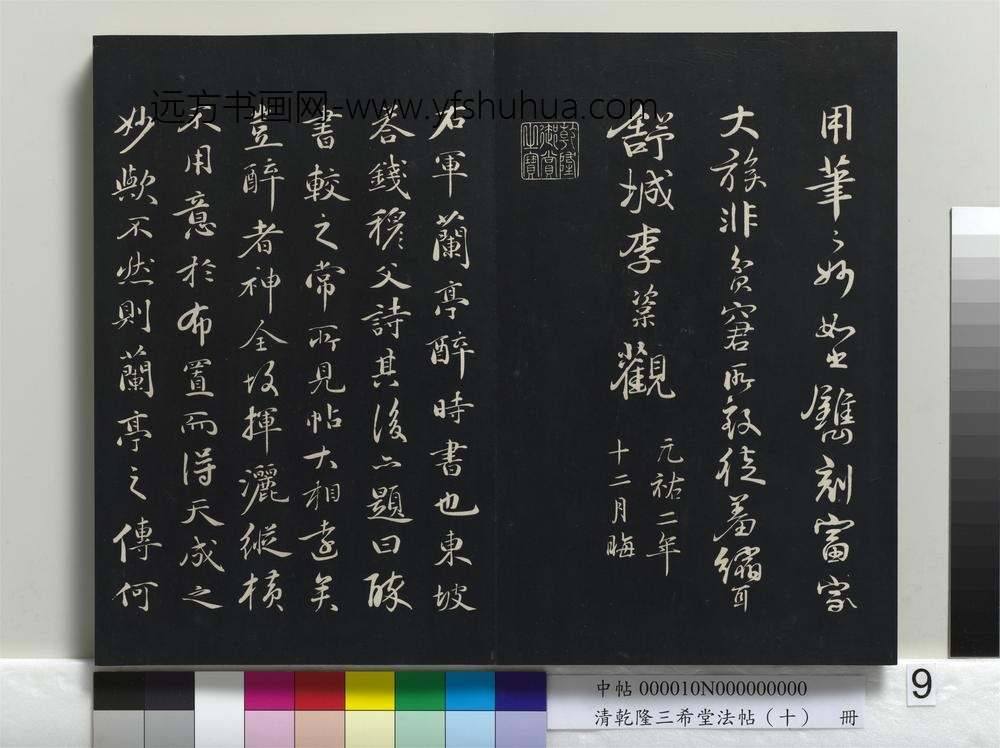 用筆之妙如鐫刻富家
大族非貧窘所致徒羞縮耳
舒城李楶觀
元祐二年
十二月晦
乾隆御賞之寶
右軍蘭亭醉時書也東坡
答錢穆父詩其後亦題曰醉
書較之常所見帖大相遠矣
豈醉者神全故揮灑縱橫
不用意於布置而得天成之
妙歟不然則蘭亭之傳何
远方书画网-www.yfshuhua.com
中帖 000010N000000000
清乾隆三希堂法帖（十） 冊
9